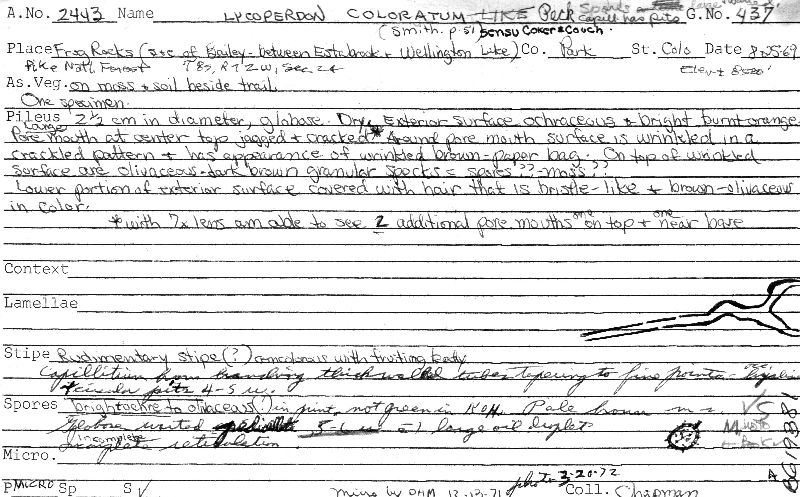 A.No. 2443 Name LYCOPERDON COLORATUM LIKE Peck Spores capill has pits G.No. 437
(Smith. p. 51) sensu Coker & Couch.
Place Frog Rocks (s+e of Bailey - between Estabrook + Wellington Lake) Co. Park St. Colo Date 8-25-69
Pike Natl. Forest T8S, R72W, Sec 24 Elev. ± 8500'
As.Veg. on moss + soil beside trail.
One specimen.
Pileus 2½ cm in diameter, globose. Dry. Exterior surface ochraceous + bright burnt orange.
Large Pore mouth at center top jagged + cracked* Around pore mouth surface is wrinkled in a
crackled pattern + has appearance of wrinkled brown-paper bag. On top of wrinkled
surface are olivaceous-dark brown granular specks = spores?? - moss??
Lower portion of exterior surface covered with hair that is bristle-like + brown-olivaceous
in color.
*with 7x lens am able to see 2 additional pore mouths one on top + one near base
Context
Lamellae
Stipe Rudimentary stipe(?) concolorous with fruiting body
Capillitium brown branching thick walled tubes tapering to fine points -
+ circular pits 4-5 u.
Spores bright ochre to olivaceous(?) in print, not green in KOH. Pale brown
Globose 5-6 u = 1 large oil droplet
incomplete reticulation
Micro.
P MICRO Sp S √ micro by DHM 12-13-71 photo 3-20-72 Coll. Chapman